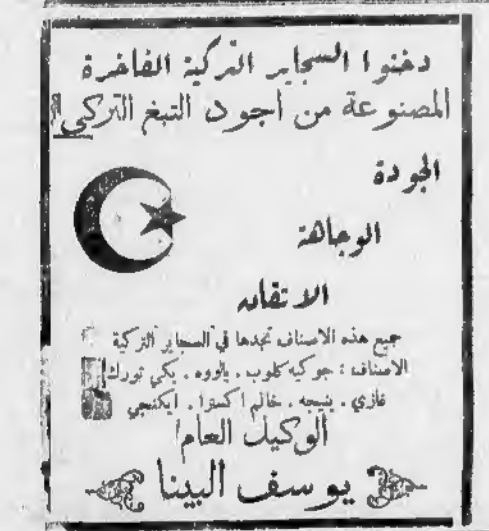 دخنوا السجاير التركية الفاخرة
المصنوعة من اجود التبغ التركي
الجودة
الوجاهة
الاتقان
جميع هذه الاصناف تجدها في السجاير التركية
الاصناف : جوكيه كلوب . يالووه . يكي تورك
غازي . ينيجه . خالم اكسترا . ايكنجي
الوكيل العام
يوسف البينا